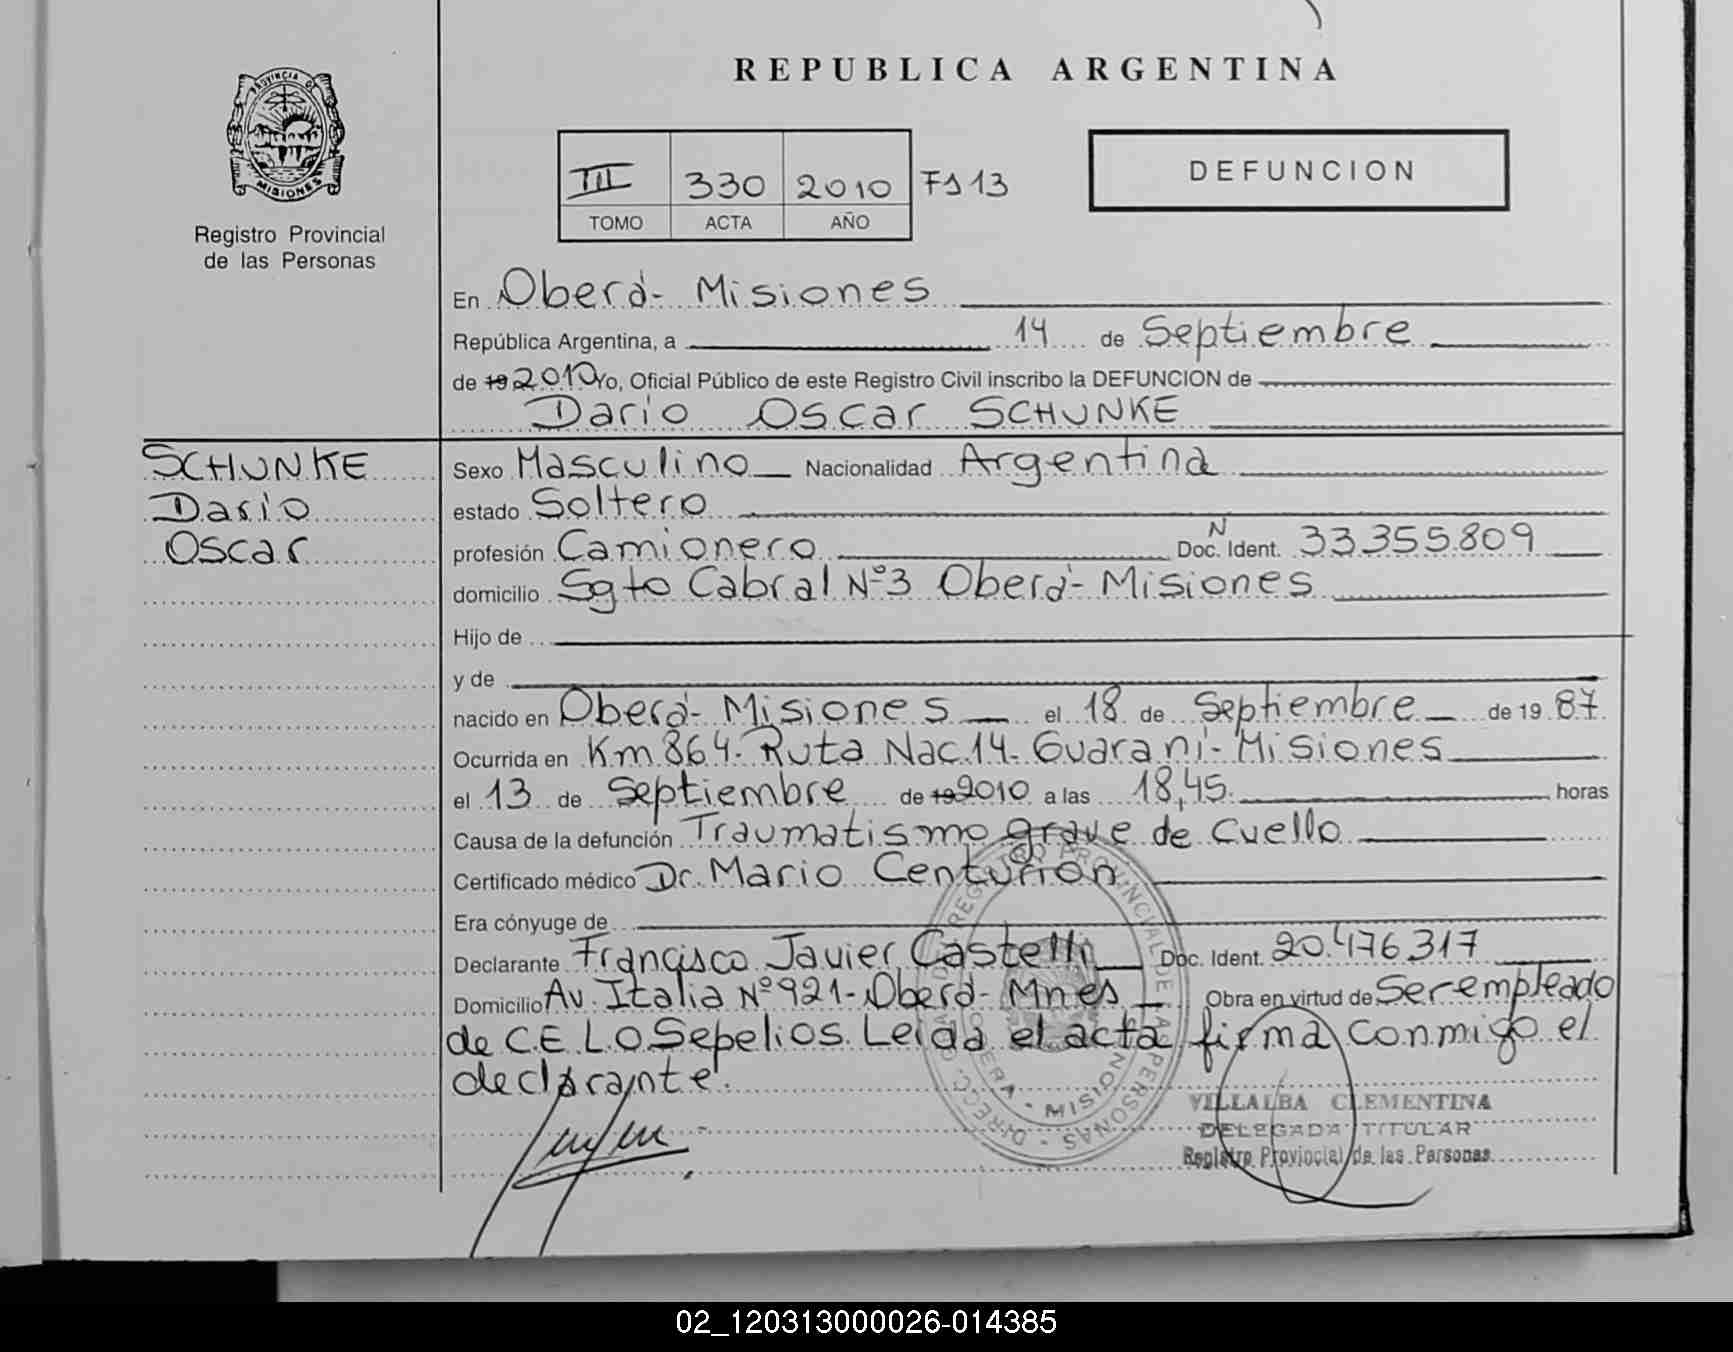 REPUBLICA ARGENTINA
PROVINCIA DE
MISIONES
Registro Provincial
de las Personas
III 330 2010 Fs 13
TOMO ACTA AÑO
DEFUNCION
En Oberá- Misiones
República Argentina, a 14 de Septiembre
de 19 2010 Yo, Oficial Público de este Registro Civil inscribo la DEFUNCION de
Dario Oscar SCHUNKE
SCHUNKE
Dario
Oscar
Sexo Masculino Nacionalidad Argentina
estado Soltero
profesión Camionero Doc. N Ident. 33355.809
domicilio Sgto Cabral Nº3 Oberá- Misiones
Hijo de
y de
nacido en Oberá- Misiones el 18 de Septiembre de 19 87
Ocurrida en Km 864- Ruta Nac.14- Guaraní- Misiones
el 13 de Septiembre de 19 2010 a las 18,45 horas
Causa de la defunción Traumatismo grave de Cuello
Certificado médico Dr. Mario Centurión
Era cónyuge de
Declarante Francisco Javier Castelli Doc. Ident. 20.476317
Domicilio Av. Italia Nº921- Oberá- Mnes Obra en virtud de Ser empleado
de C.E.L.O Sepelios. Leida el acta firma conmigo el
declarante.
DIRECC. REGISTRO PROVINCIAL DE LAS PERSONAS
OBERA - MISIONES
VILLALBA CLEMENTINA
DELEGADA TITULAR
Registro Provincial de las Personas
02_120313000026-014385